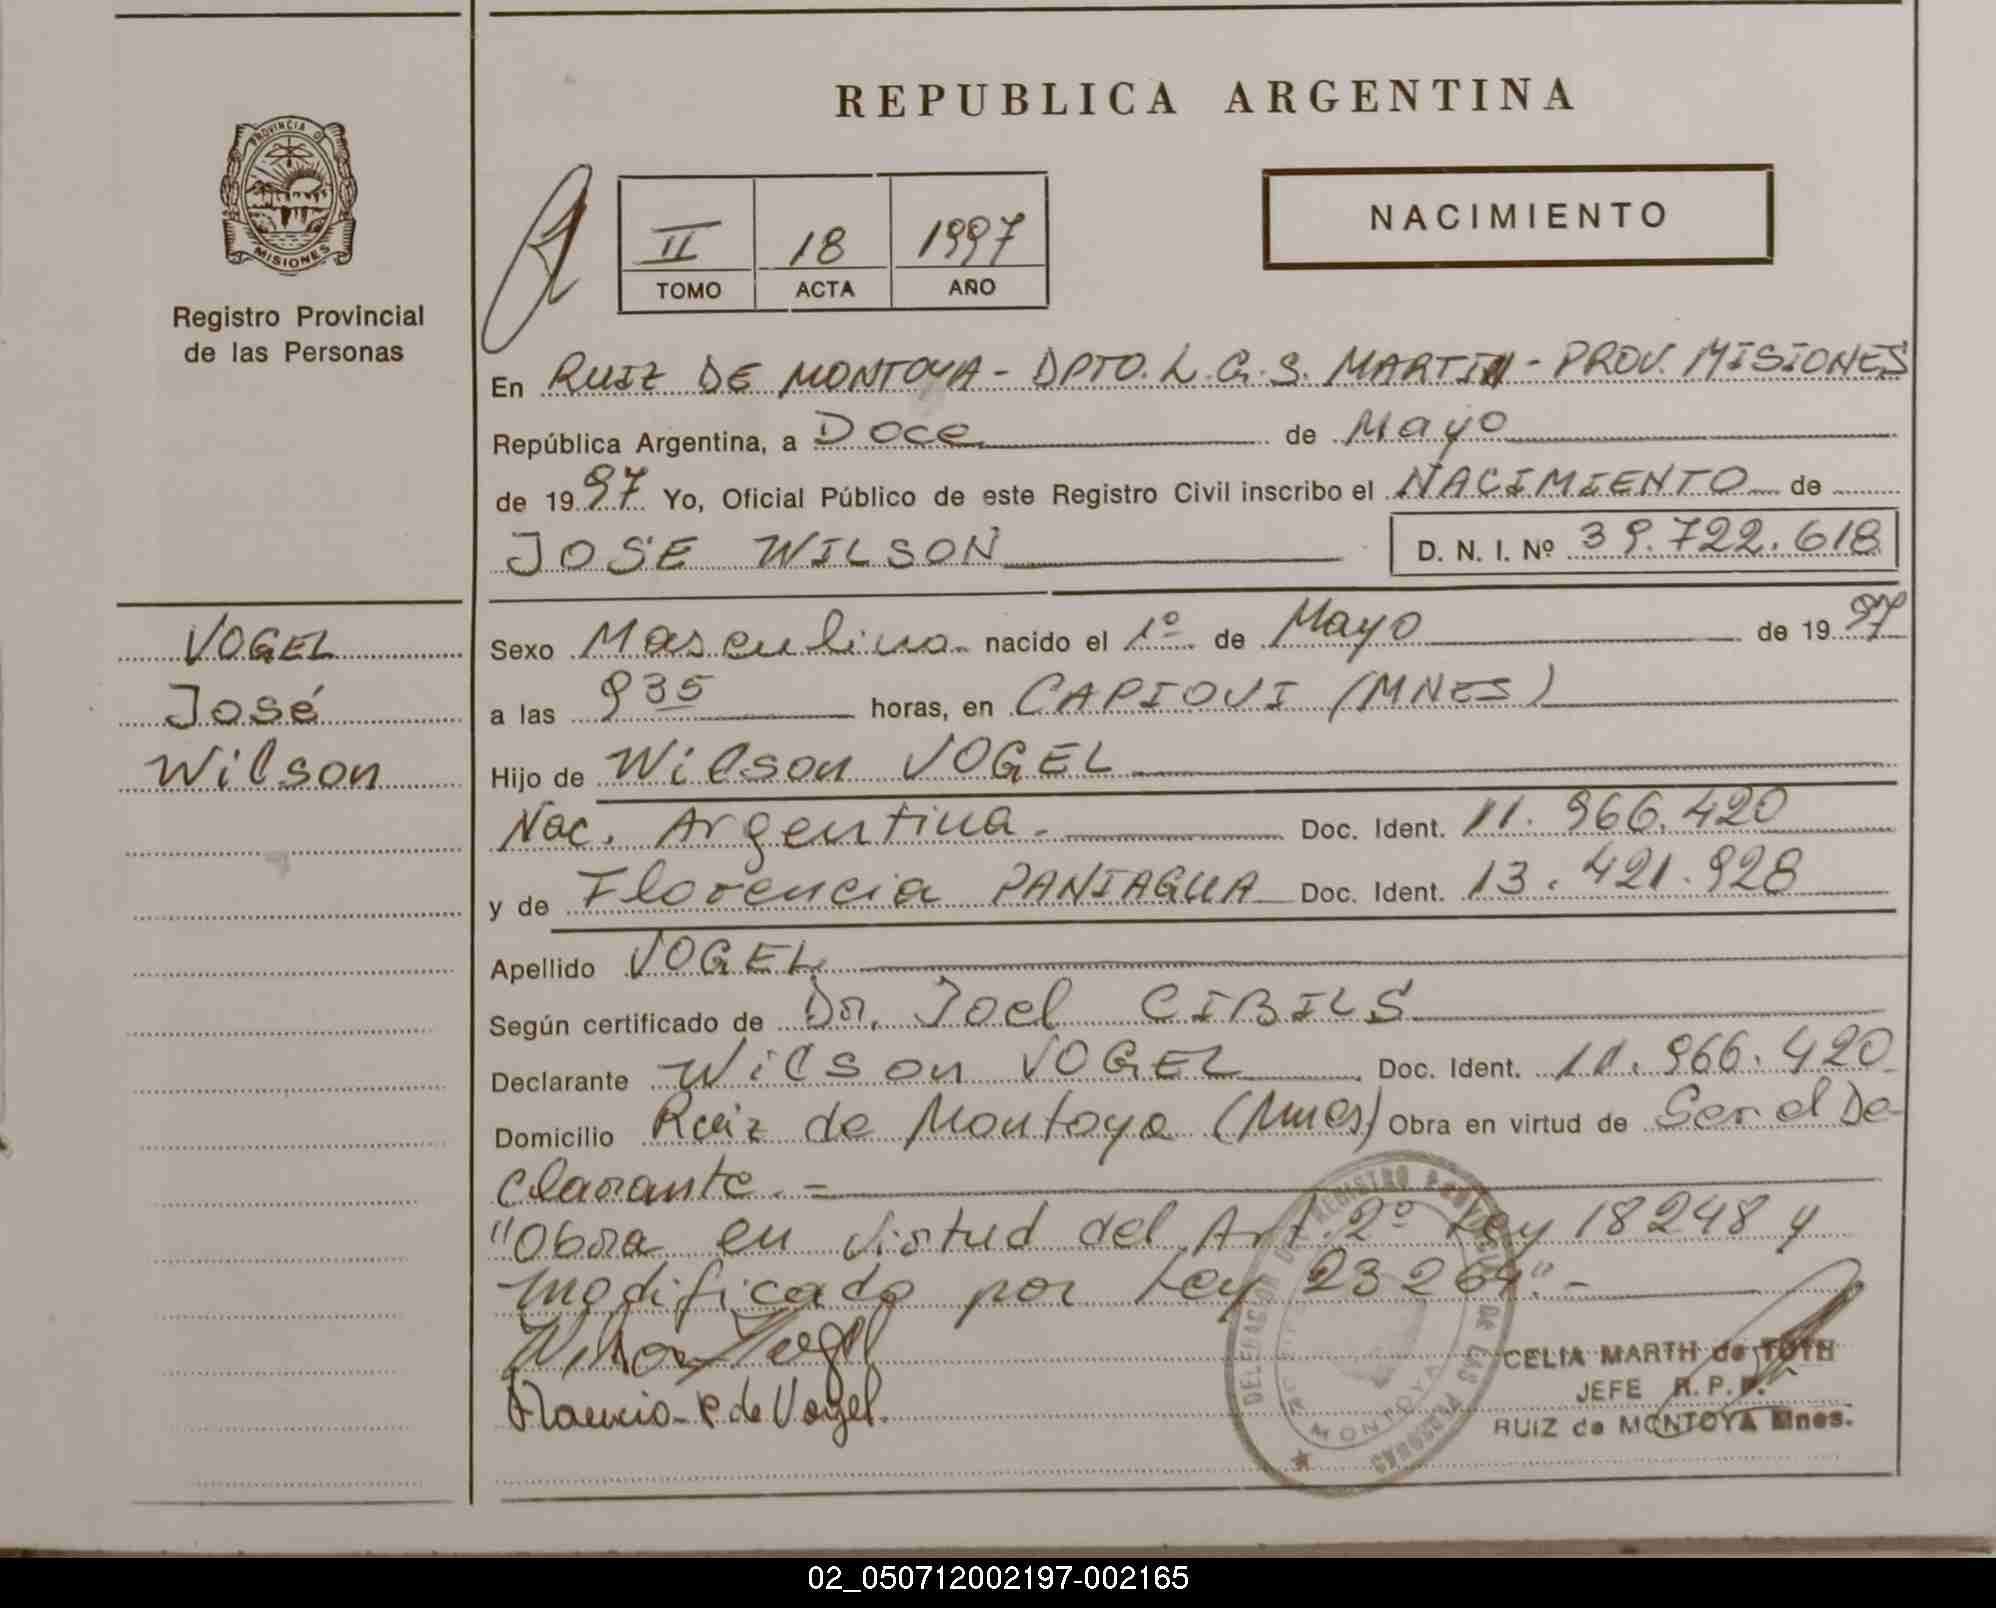 REPUBLICA ARGENTINA
PROVINCIA D
MISIONES
Registro Provincial
de las Personas
II 18 1997
TOMO ACTA AÑO
NACIMIENTO
En RUIZ DE MONTOYA - DPTO. L.G.S. MARTIN - PROV. MISIONES
República Argentina, a Doce de Mayo
de 1997 Yo, Oficial Público de este Registro Civil inscribo el NACIMIENTO de
JOSE WILSON D. N. I. Nº 39.722.618
VOGEL
José
Wilson
Sexo Masculino nacido el 1º de Mayo de 1997
a las 9 35 horas, en CAPIOVI (MNES)
Hijo de Wilson VOGEL
Nac. Argentina. Doc. Ident. 11.966.420
y de Florencia PANIAGUA Doc. Ident. 13.421.928
Apellido VOGEL
Según certificado de Dr. Joel CIBILS
Declarante Wilson VOGEL Doc. Ident. 11.966.420
Domicilio Ruiz de Montoya (Mnes) Obra en virtud de Ser el De-
clarante.-
"Obra en virtud del Art. 2º Ley 18248 y
modificado por Ley 23264".-
Wilson Vogel
P. de Vogel.
DELEGACION DEL REGISTRO PROVINCIAL DE LAS PERSONAS
MONTOYA
CELIA MARTH de TOTH
JEFE R.P.P.
RUIZ de MONTOYA Mnes.
02_050712002197-002165